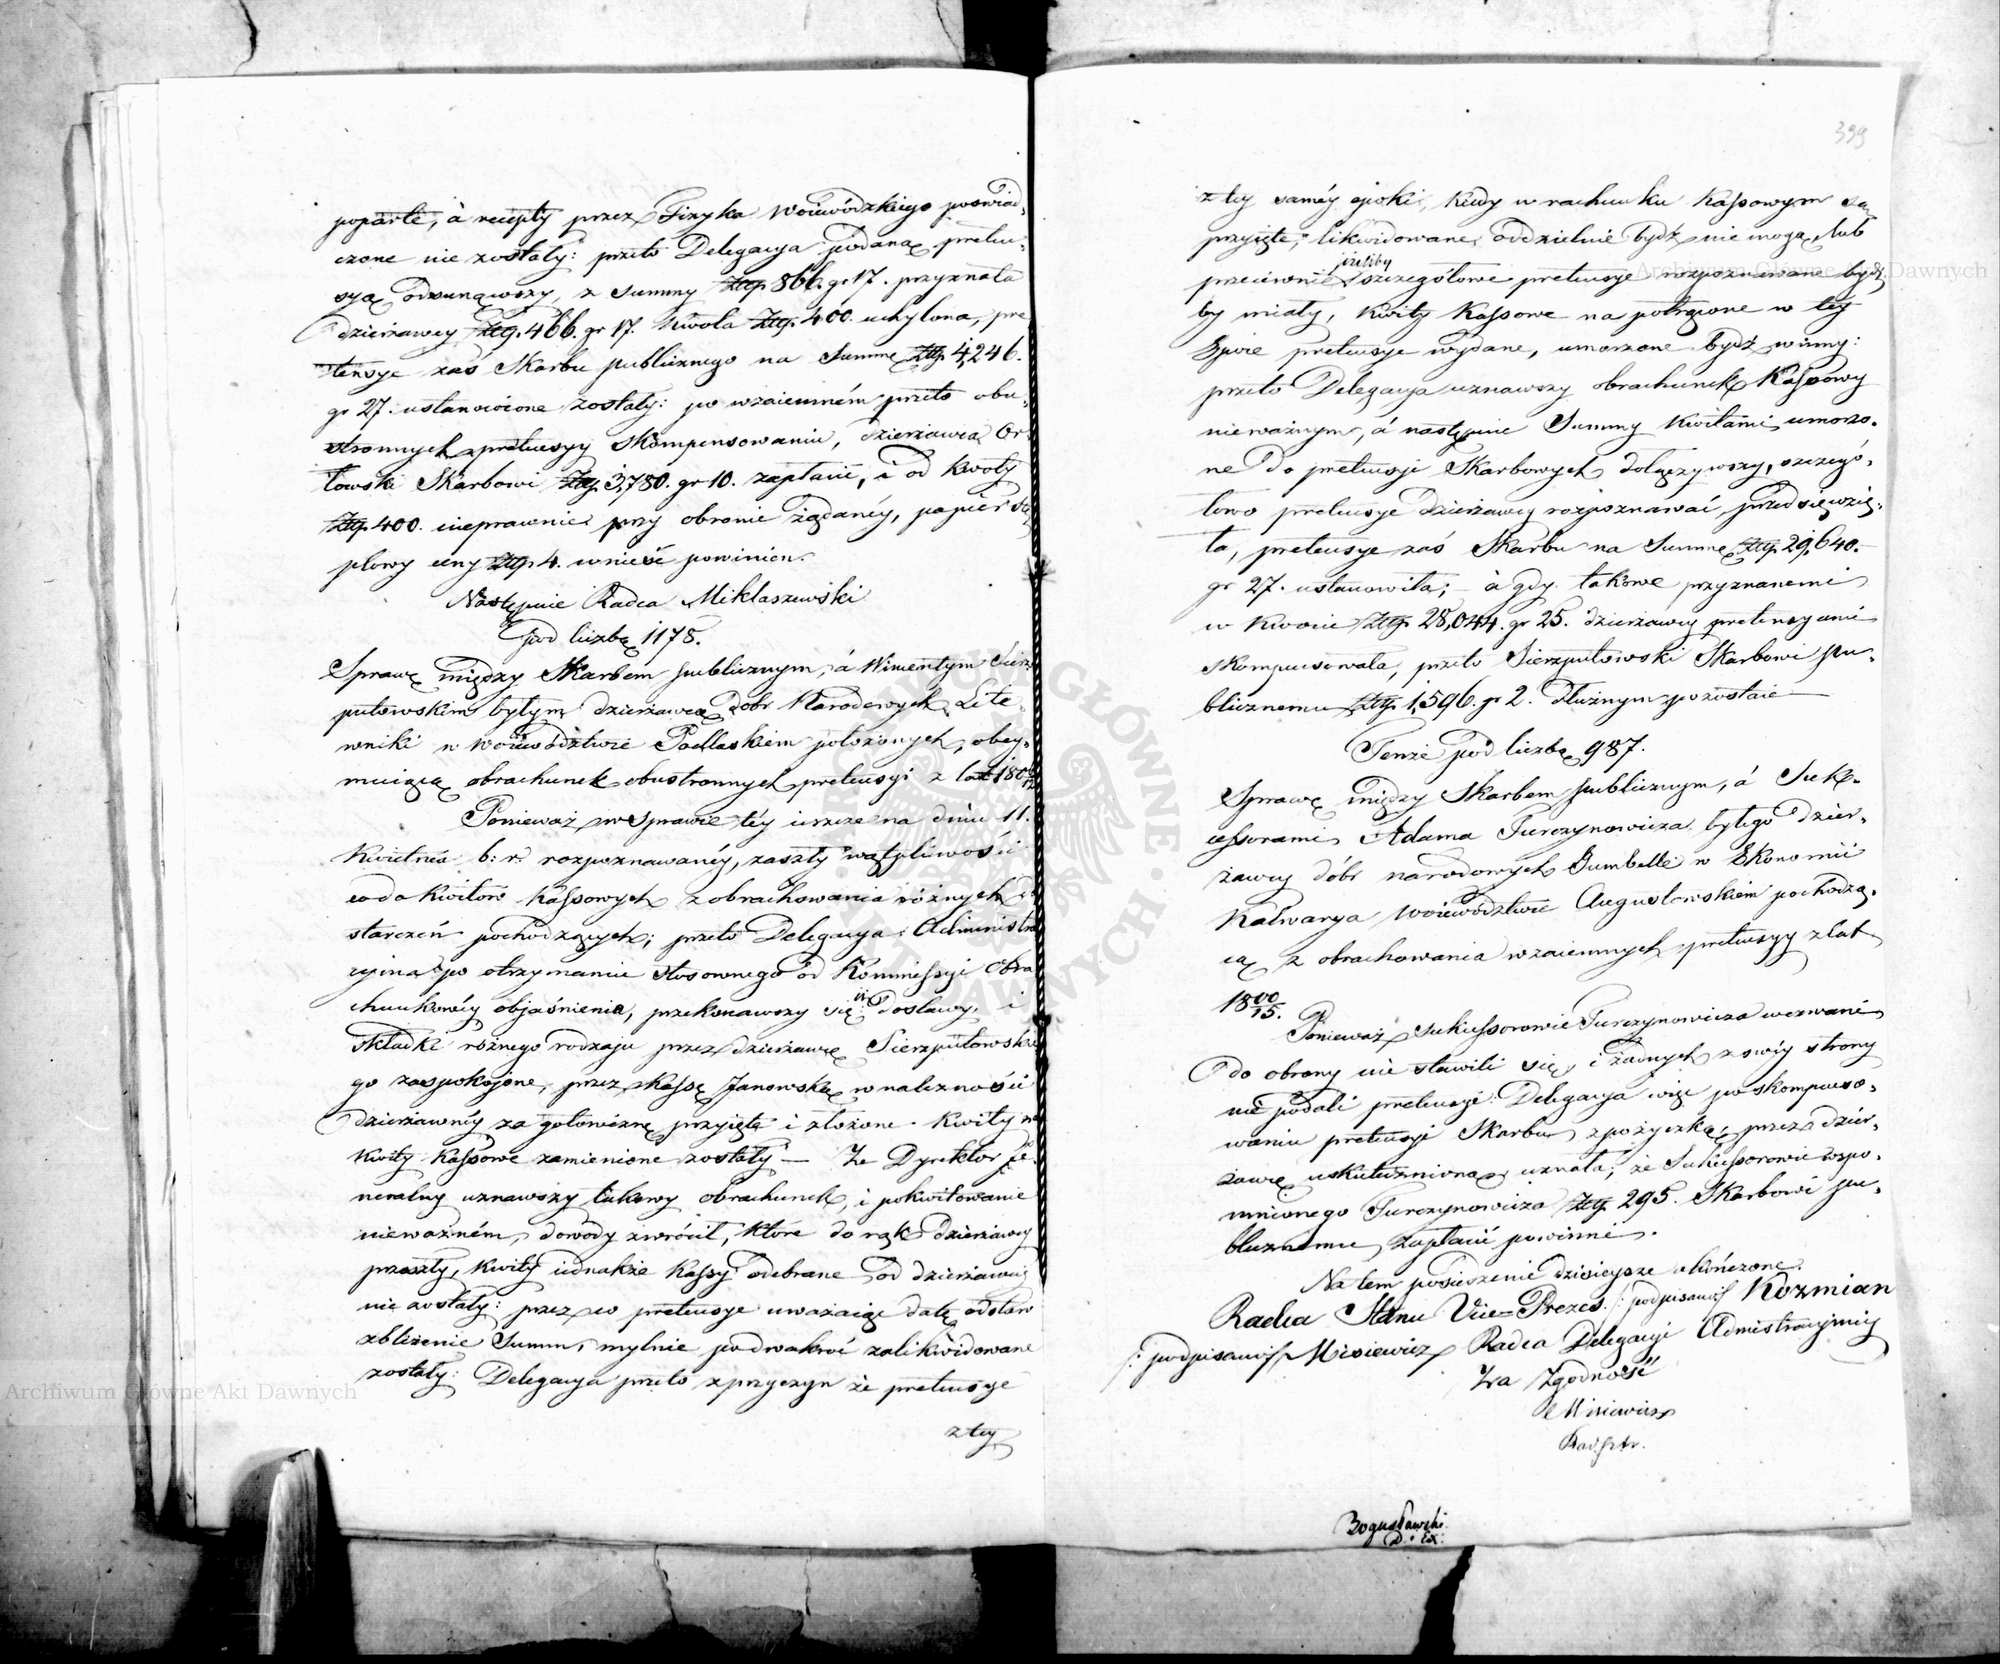 poparte, à recepty przez Fizyka Woiewódzkiego poświad-
czone nie zostały: przeto Delegacya podaną preten-
syą odsunąwszy, z Summy Złtp. 866. gr 17. przyznała
dzierżawcy Złtp. 466. gr 17. Kwota Złtp. 400. uchylona, pre
tensye zaś Skarbu publicznego na Summę Złtp. 4,246.
gr 27. ustanowione zostały: po wzaiemném przeto obu-
stronnych pretensyy skompensowaniu, dzierżawca Or-
łowski Skarbowi Złtp. 3,780. gr 10. zapłacić, i od kwoty
Złtp. 400. nieprawnie przy obronie żądanéy, papier stę
plowy ceny Złtp 4. wnieść powinien.
Następnie Radca Miklaszewski
pod liczbą 1178.
Sprawę między Skarbem publicznym, á Wincentym Sierz
putowskim byłym dzierżawcą dóbr Narodowych Lite-
wniki w Woiewództwie Podlaskiem położonych, obey-
muiącą obrachunek obustronnych pretensyi z lat
Ponieważ w Sprawie téy ieszcze na dniu 11.
Kwietnia b: r. rozpoznawanéy, zaszły wątpliwości
co do kwitów Kassowych z obrachowania różnych do
starczeń pochodzących; przeto Delegacya Administra
cyina po otrzymaniu stosownego od Kommissyi Obra
chunkowéy objaśnienia, przekonawszy się iż Dostawy i
składki różnego rodzaju przez dzierżawcę Sierzputowskie
go zaspokojone, przez Kassę Janowską w należności
dzierżawnéy za gotowiznę przyięte i złożone kwity na
kwity Kassowe zamienione zostały — Że Dyrektor Je-
neralny uznawszy takowy obrachunek, i pokwitowanie
nieważném, dowody zwrócił, które do rąk dzierżawcy
przeszły, kwity iednakże Kassy odebrane od dzierżawcy
nie zostały: przez co pretensye uważaiąc datę odstaw
zbliżenie Summ, mylnie podwakroć zalikwidowane
zostały: Delegacya przeto z przyczyn że pretensye
z téy
399
z téy saméy epoki, kiedy w rachunku Kassowym są
przyięte, likwidowane oddzielnie bydź nie mogą, lub
przeciwnie ieżeliby szczegółowe pretensye rozpoznawane bydź
by miały, kwity Kassowe na potrącone w téy
Sprawie pretensye wydane, umorzone bydź winny:
przeto Delegacya uznawszy obrachunek Kassowy
nieważnym, á następnie Summy kwitami umorzo-
ne do pretensyi Skarbowych dołączywszy, szczegó-
łowo pretensye dzierżawcy rozpoznawać przedsięwzię-
ła, pretensye zaś Skarbu na Summę Złtp. 29,640.
gr 27. ustanowiła; — à gdy takowe przyznanemi
w kwocie Złtp. 28,044. gr 25. dzierżawcy pretensyami
skompensowała, przeto Sierzputowski Skarbowi pu-
blicznemu Złtp. 1,596. gr 2. dłużnym pozostaie —
Tenże pod liczbą 987.
Sprawę między Skarbem publicznym, á Sukc-
cessorami Adama Turczynowicza byłego dzier-
żawcy dóbr narodowych Gumbelle w Ekonomii
Kalwarya Woiewództwie Augustowskiém pochodzą-
cą z obrachowania wzaiemnych pretensyy z lat
1800/15.
Ponieważ Sukcessorowie Turczynowicza wezwani
do obrony nie stawili się, i żadnych z swéy strony
nie podali pretensyi: Delegacya więc po skompenso-
waniu pretensyi Skarbu z pożyczką przez dzier-
żawcę uskutecznioną, uznała, że Sukcessorowie wspo-
mnionego Turczynowicza Złtp. 295. Skarbowi pu-
blicznemu zapłacić powinni.
Na tem posiedzenie dzisieysze ukończone.
Radca Stanu Vice-Prezes /: podpisano :/ Kozmian
/: podpisano :/ Misiewicz Radca Delegacyi Admistracyinéy
Za Zgodność
Misiewicz
Bogusławski
D. Ex:
Archiwum Główne Akt Dawnych
Archiwum Główne Akt Dawnych
ARCHIWUM GŁÓWNE AKT DAWNYCH